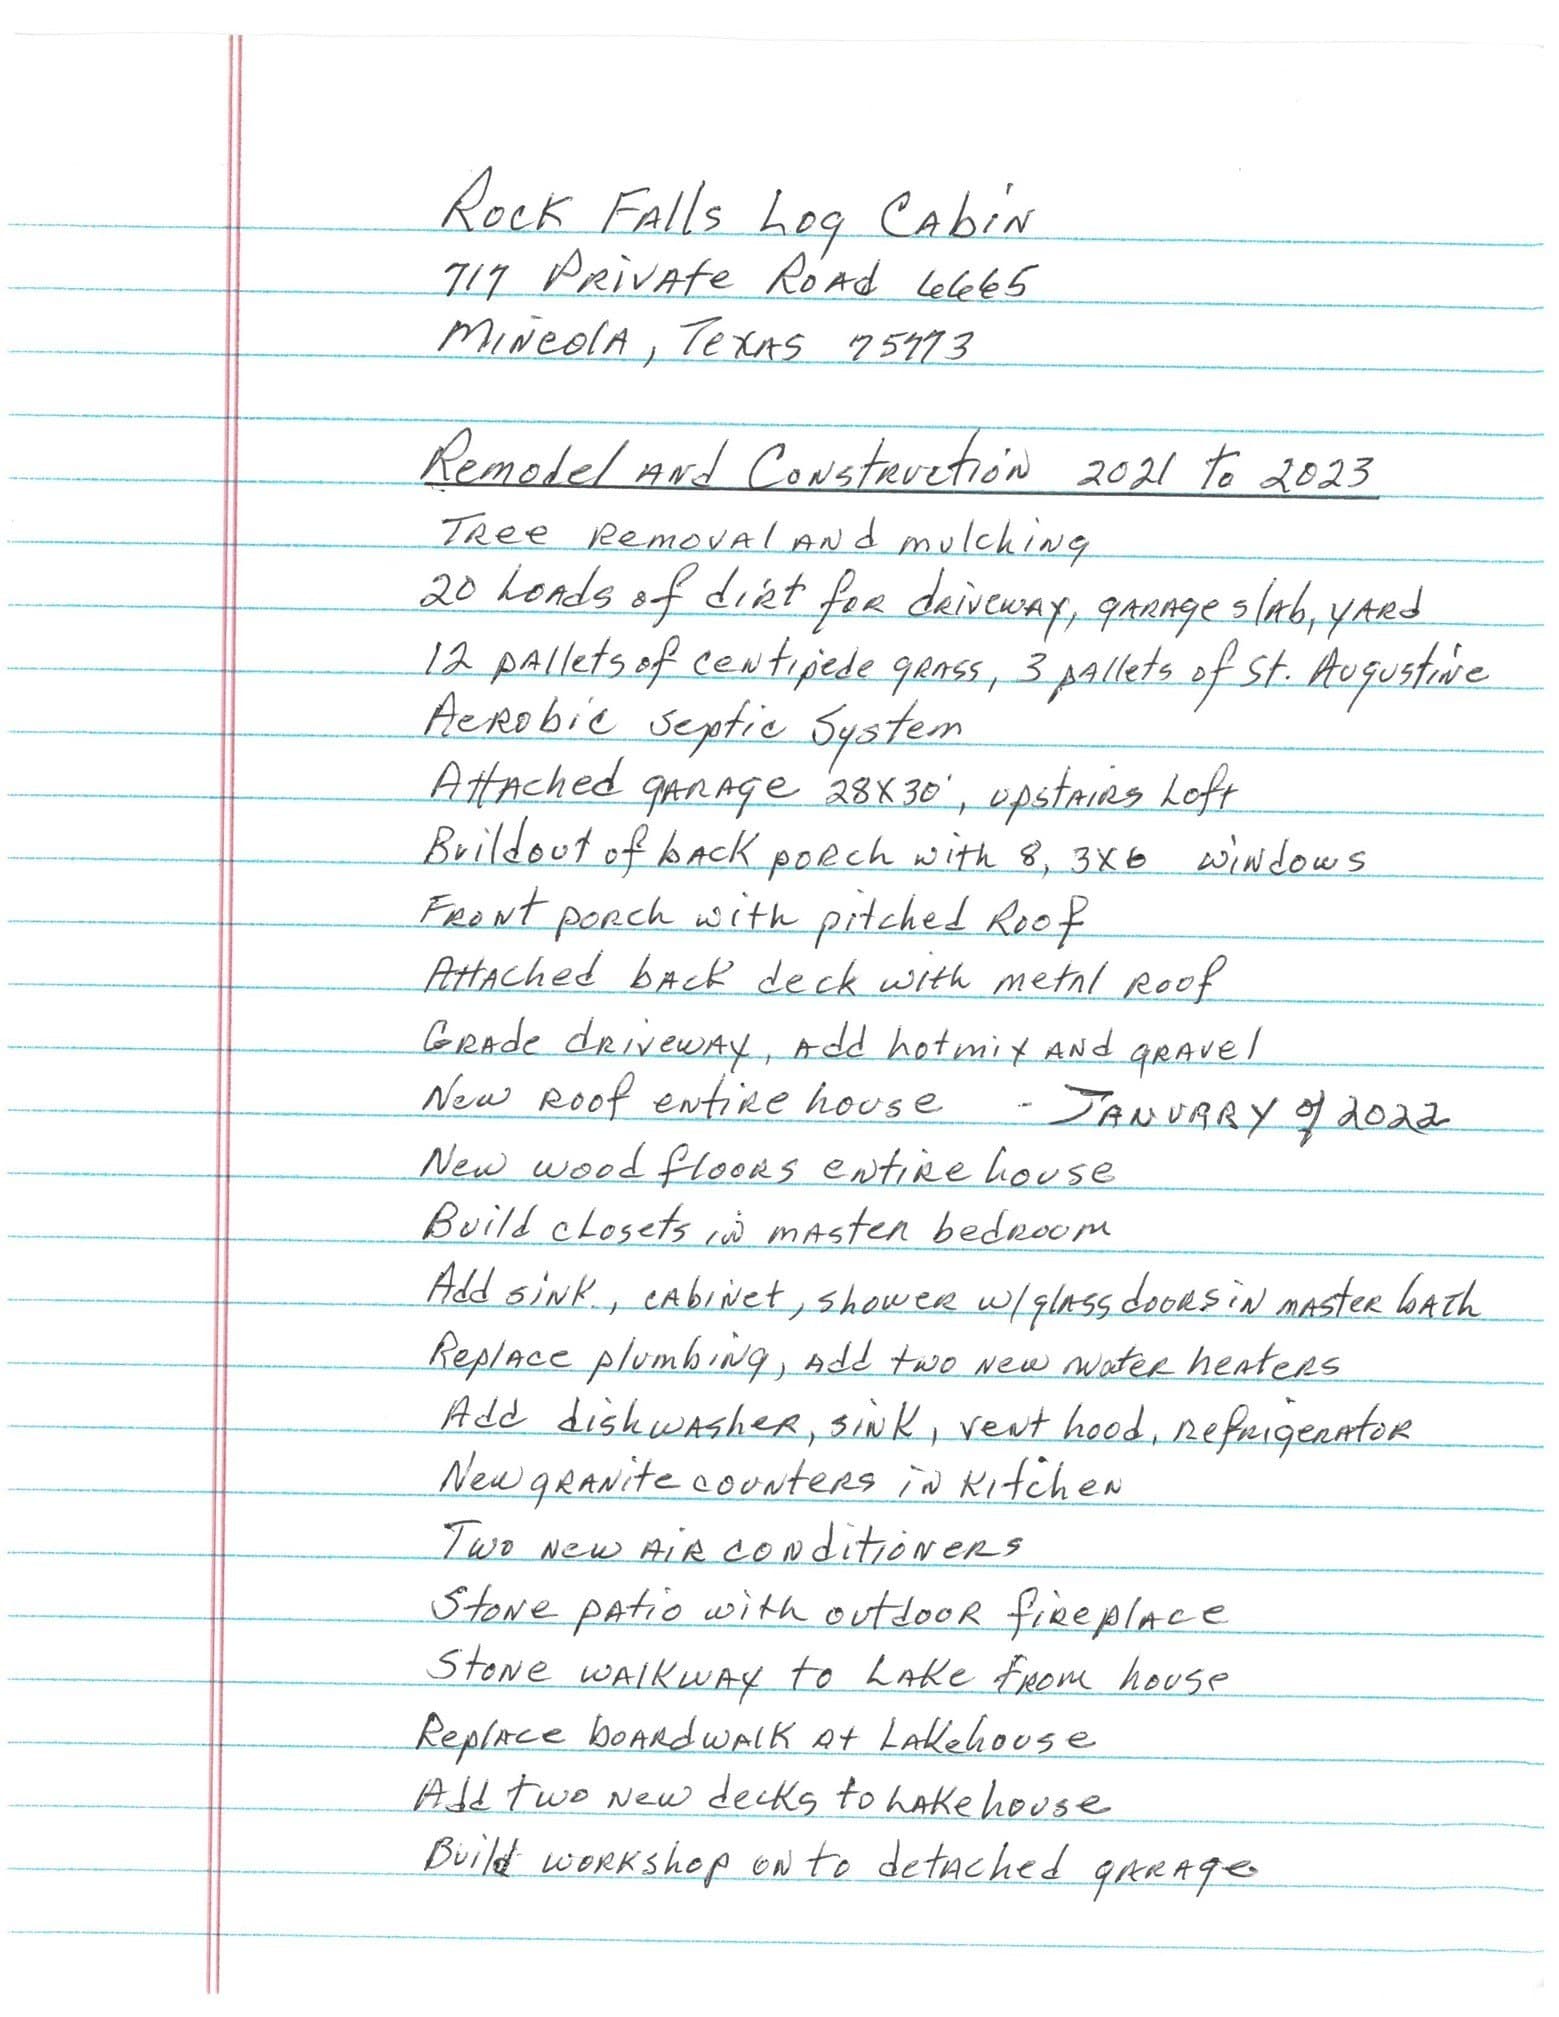 Rock Falls Log Cabin
717 Private Road 6665
Mineola, Texas 75773
Remodel and Construction 2021 to 2023
Tree removal and mulching
20 Loads of dirt for driveway, garage slab, yard
12 pallets of centipede grass, 3 pallets of St. Augustine
Aerobic septic System
Attached garage 28x30', upstairs Loft
Buildout of back porch with 8, 3x6 windows
Front porch with pitched Roof
Attached back deck with metal Roof
Grade driveway, add hotmix and gravel
New Roof entire house - January of 2022
New wood floors entire house
Build closets in master bedroom
Add sink, cabinet, shower w/glass doors in master bath
Replace plumbing, add two new water heaters
Add dishwasher, sink, vent hood, refrigerator
New granite counters in kitchen
Two new air conditioners
Stone patio with outdoor fireplace
Stone walkway to Lake from house
Replace boardwalk at Lakehouse
Add two new decks to Lakehouse
Build workshop on to detached garage